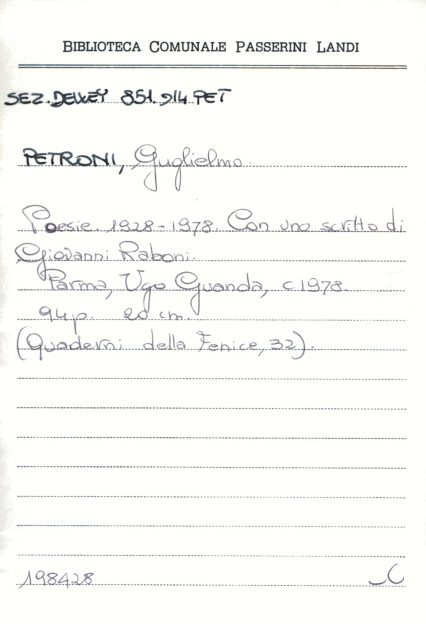 BIBLIOTECA COMUNALE PASSERINI LANDI
SEZ. DEWEY 851.914 PET
PETRONI, Guglielmo
Poesie. 1928-1978. Con uno scritto di
Giovanni Raboni.
Parma, Ugo Guanda, c1978.
94 p. 20 cm.
(Quaderni della Fenice, 32).
198428